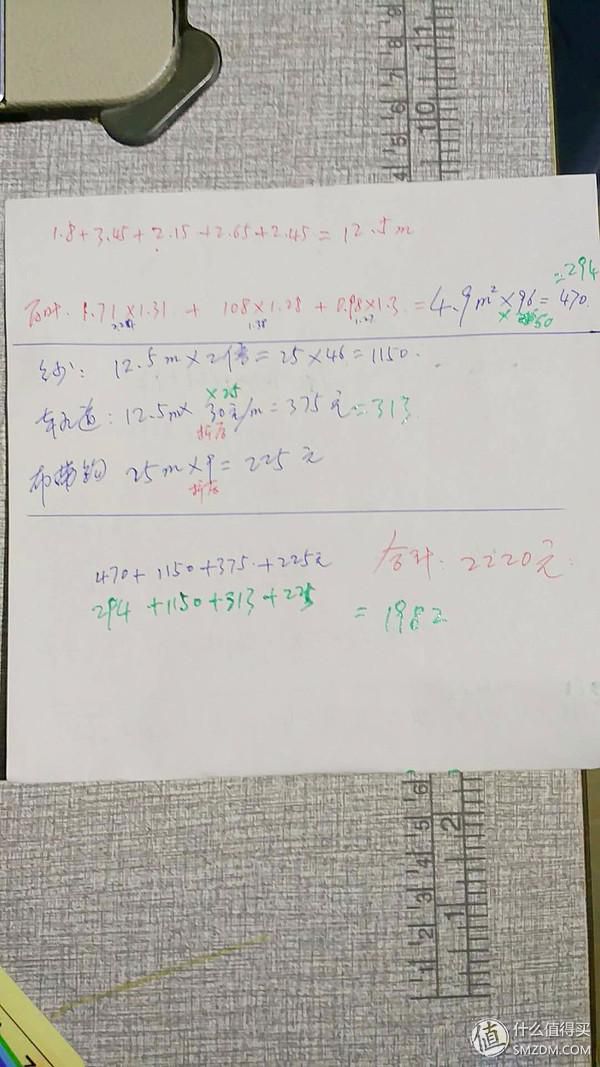 1.8+3.45+2.15+2.65+2.45=12.5m
=294
百叶: 1.71×1.31 + 108×1.28 + 0.98×1.3=4.9m²×96=470
1.38 1.27 ×50
纱: 12.5m×2倍=25×46=1150.
×25
轨道: 12.5m× 30元/m=375元=313
折后
布带钩 25m×9=225元
折后
470+1150+375+225元 合计: 2220元
294+1150+313+225 =1982
什么值得买
SMZDM.COM
值
11
10
9
8
7
6
5
4
6
5
4
3
2
1
2
1